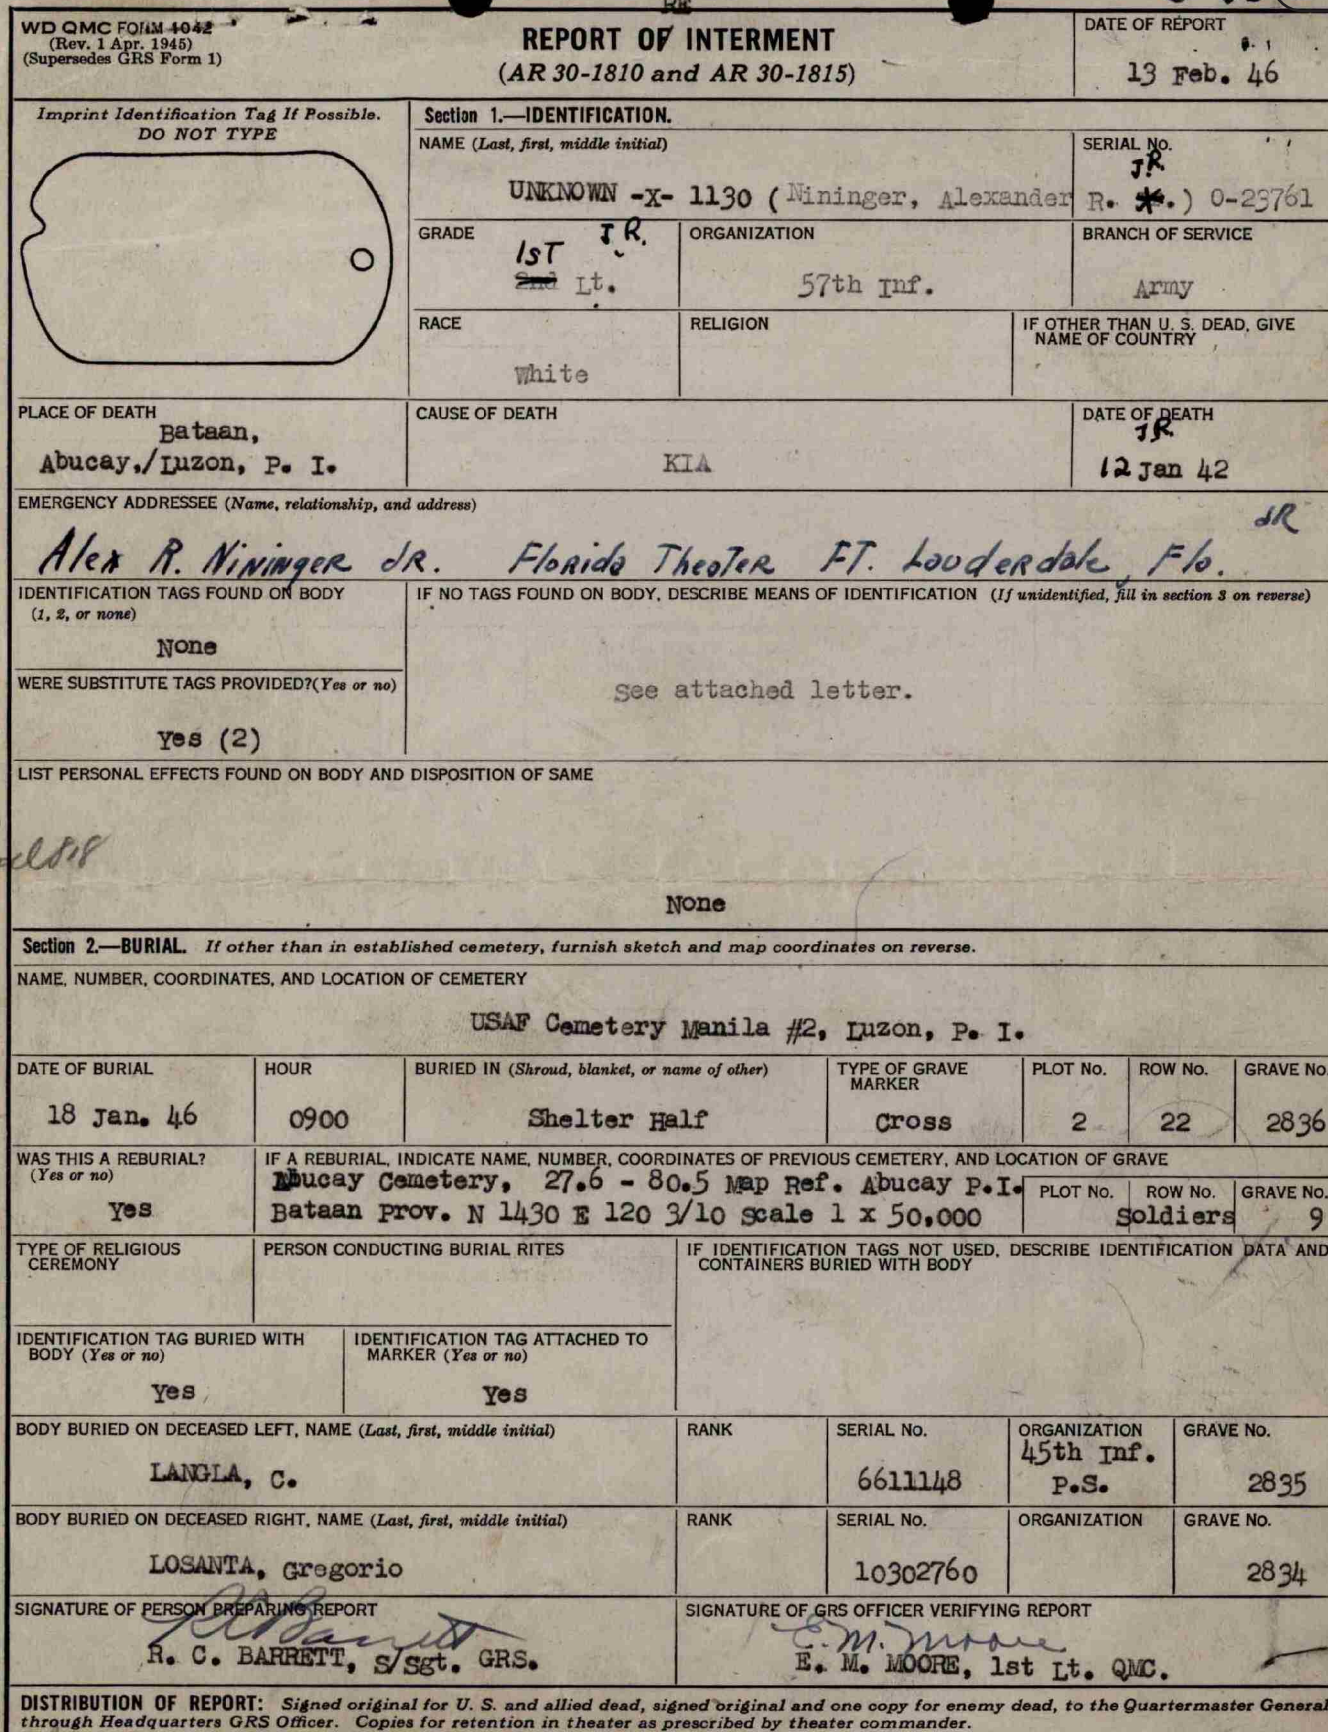 RE
WD QMC FORM 1042
(Rev. 1 Apr. 1945)
(Supersedes GRS Form 1)
REPORT OF INTERMENT
(AR 30-1810 and AR 30-1815)
DATE OF REPORT
13 Feb. 46
Imprint Identification Tag If Possible.
DO NOT TYPE
Section 1.—IDENTIFICATION.
NAME (Last, first, middle initial)
SERIAL No.
JR
UNKNOWN -X- 1130 (Nininger, Alexander R. .) O-23761
GRADE
JR.
1ST
2nd Lt.
ORGANIZATION
57th Inf.
BRANCH OF SERVICE
Army
RACE
White
RELIGION
IF OTHER THAN U. S. DEAD, GIVE
NAME OF COUNTRY
PLACE OF DEATH
Bataan,
Abucay,/Luzon, P. I.
CAUSE OF DEATH
KIA
DATE OF DEATH
JR
12 Jan 42
EMERGENCY ADDRESSEE (Name, relationship, and address)
JR
Alex R. Nininger JR. Florida Theater FT. Lauderdale, Fla.
IDENTIFICATION TAGS FOUND ON BODY
(1, 2, or none)
None
IF NO TAGS FOUND ON BODY, DESCRIBE MEANS OF IDENTIFICATION (If unidentified, fill in section 3 on reverse)
See attached letter.
WERE SUBSTITUTE TAGS PROVIDED?(Yes or no)
Yes (2)
LIST PERSONAL EFFECTS FOUND ON BODY AND DISPOSITION OF SAME
None
Section 2.—BURIAL. If other than in established cemetery, furnish sketch and map coordinates on reverse.
NAME, NUMBER, COORDINATES, AND LOCATION OF CEMETERY
USAF Cemetery Manila #2, Luzon, P. I.
DATE OF BURIAL
18 Jan. 46
HOUR
0900
BURIED IN (Shroud, blanket, or name of other)
Shelter Half
TYPE OF GRAVE
MARKER
Cross
PLOT No.
2
ROW No.
22
GRAVE No.
2836
WAS THIS A REBURIAL?
(Yes or no)
Yes
IF A REBURIAL, INDICATE NAME, NUMBER, COORDINATES OF PREVIOUS CEMETERY, AND LOCATION OF GRAVE
Abucay Cemetery, 27.6 - 80.5 Map Ref. Abucay P.I.
Bataan Prov. N 1430 E 120 3/10 Scale 1 x 50,000
PLOT No.
ROW No.
Soldiers
GRAVE No.
9
TYPE OF RELIGIOUS
CEREMONY
PERSON CONDUCTING BURIAL RITES
IF IDENTIFICATION TAGS NOT USED, DESCRIBE IDENTIFICATION DATA AND
CONTAINERS BURIED WITH BODY
IDENTIFICATION TAG BURIED WITH
BODY (Yes or no)
Yes
IDENTIFICATION TAG ATTACHED TO
MARKER (Yes or no)
Yes
BODY BURIED ON DECEASED LEFT, NAME (Last, first, middle initial)
LANGLA, C.
RANK
SERIAL No.
6611148
ORGANIZATION
45th Inf.
P.S.
GRAVE No.
2835
BODY BURIED ON DECEASED RIGHT, NAME (Last, first, middle initial)
LOSANTA, Gregorio
RANK
SERIAL No.
10302760
ORGANIZATION
GRAVE No.
2834
SIGNATURE OF PERSON PREPARING REPORT
R C Barrett
R. C. BARRETT, S/Sgt. GRS.
SIGNATURE OF GRS OFFICER VERIFYING REPORT
E. M. Moore
E. M. MOORE, 1st Lt. QMC.
DISTRIBUTION OF REPORT: Signed original for U. S. and allied dead, signed original and one copy for enemy dead, to the Quartermaster General
through Headquarters GRS Officer. Copies for retention in theater as prescribed by theater commander.